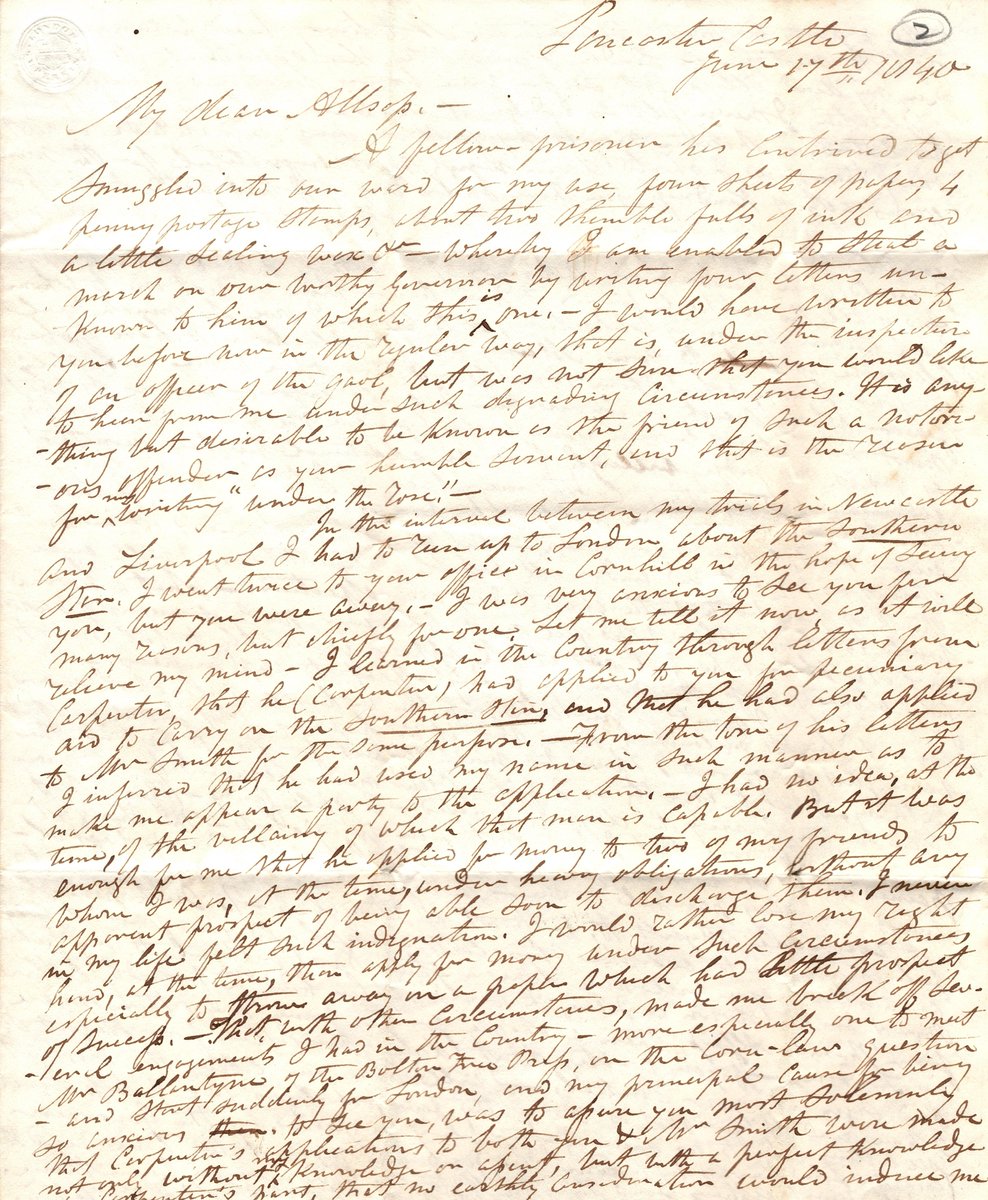 2
Lancaster Castle
June 17th 1840
My dear Allsop. —
— A fellow-prisoner has contrived to get
smuggled into our ward for my use, four sheets of paper, 4
penny postage stamps, about two thimble fulls of ink and
a little sealing wax &c — whereby I am enabled to steal a
march on our worthy Governor by writing four letters un-
known to him of which this is one. — I would have written to
you before now in the regular way, that is, under the inspection
of an officer of the gaol, but was not sure that you would like
to hear from me under such degrading circumstances. It is any-
-thing but desirable to be known as the friend of such a notori-
-ous offender as your humble servant, and that is the reason
for my writing "under the rose." —
In the interval between my trials in Newcastle
and Liverpool I had to run up to London about the Southern
Star. I went twice to your office in Cornhill in the hope of seeing
you, but you were away. — I was very anxious to see you for
many reasons, but chiefly for one. Let me tell it now, as it will
relieve my mind — I learned in the Country through letters from
Carpenter, that he (Carpenter) had applied to you for pecuniary
aid to carry on the Southern Star, and that he had also applied
to Mr Smith for the same purpose. — From the tone of his letters
I inferred that he had used my name in such manner as to
make me appear a party to the application. — I had no idea, at the
time, of the villainy of which that man is capable. But it was
enough for me that he applied for money to two of my friends to
whom I was, at the time, under heavy obligations, without any
apparent prospect of being able soon to discharge them. I never
in my life felt such indignation. I would rather lose my right
hand, at the time, than apply for money under such circumstances
especially to throw away on a paper which had little prospect
of success. — That, with other circumstances, made me break off sev-
-eral engagements I had in the Country — more especially one to meet
Mr Ballantyne of the Bolton Free Press, on the Corn-law question
— and start suddenly for London, and my principal cause for being
so anxious to see you, was to assure you most solemnly
that Carpenter's applications to both you & Mr Smith were made
not only without my knowledge or assent, but with a perfect knowledge
on Carpenter's part, that no earthly consideration would induce me